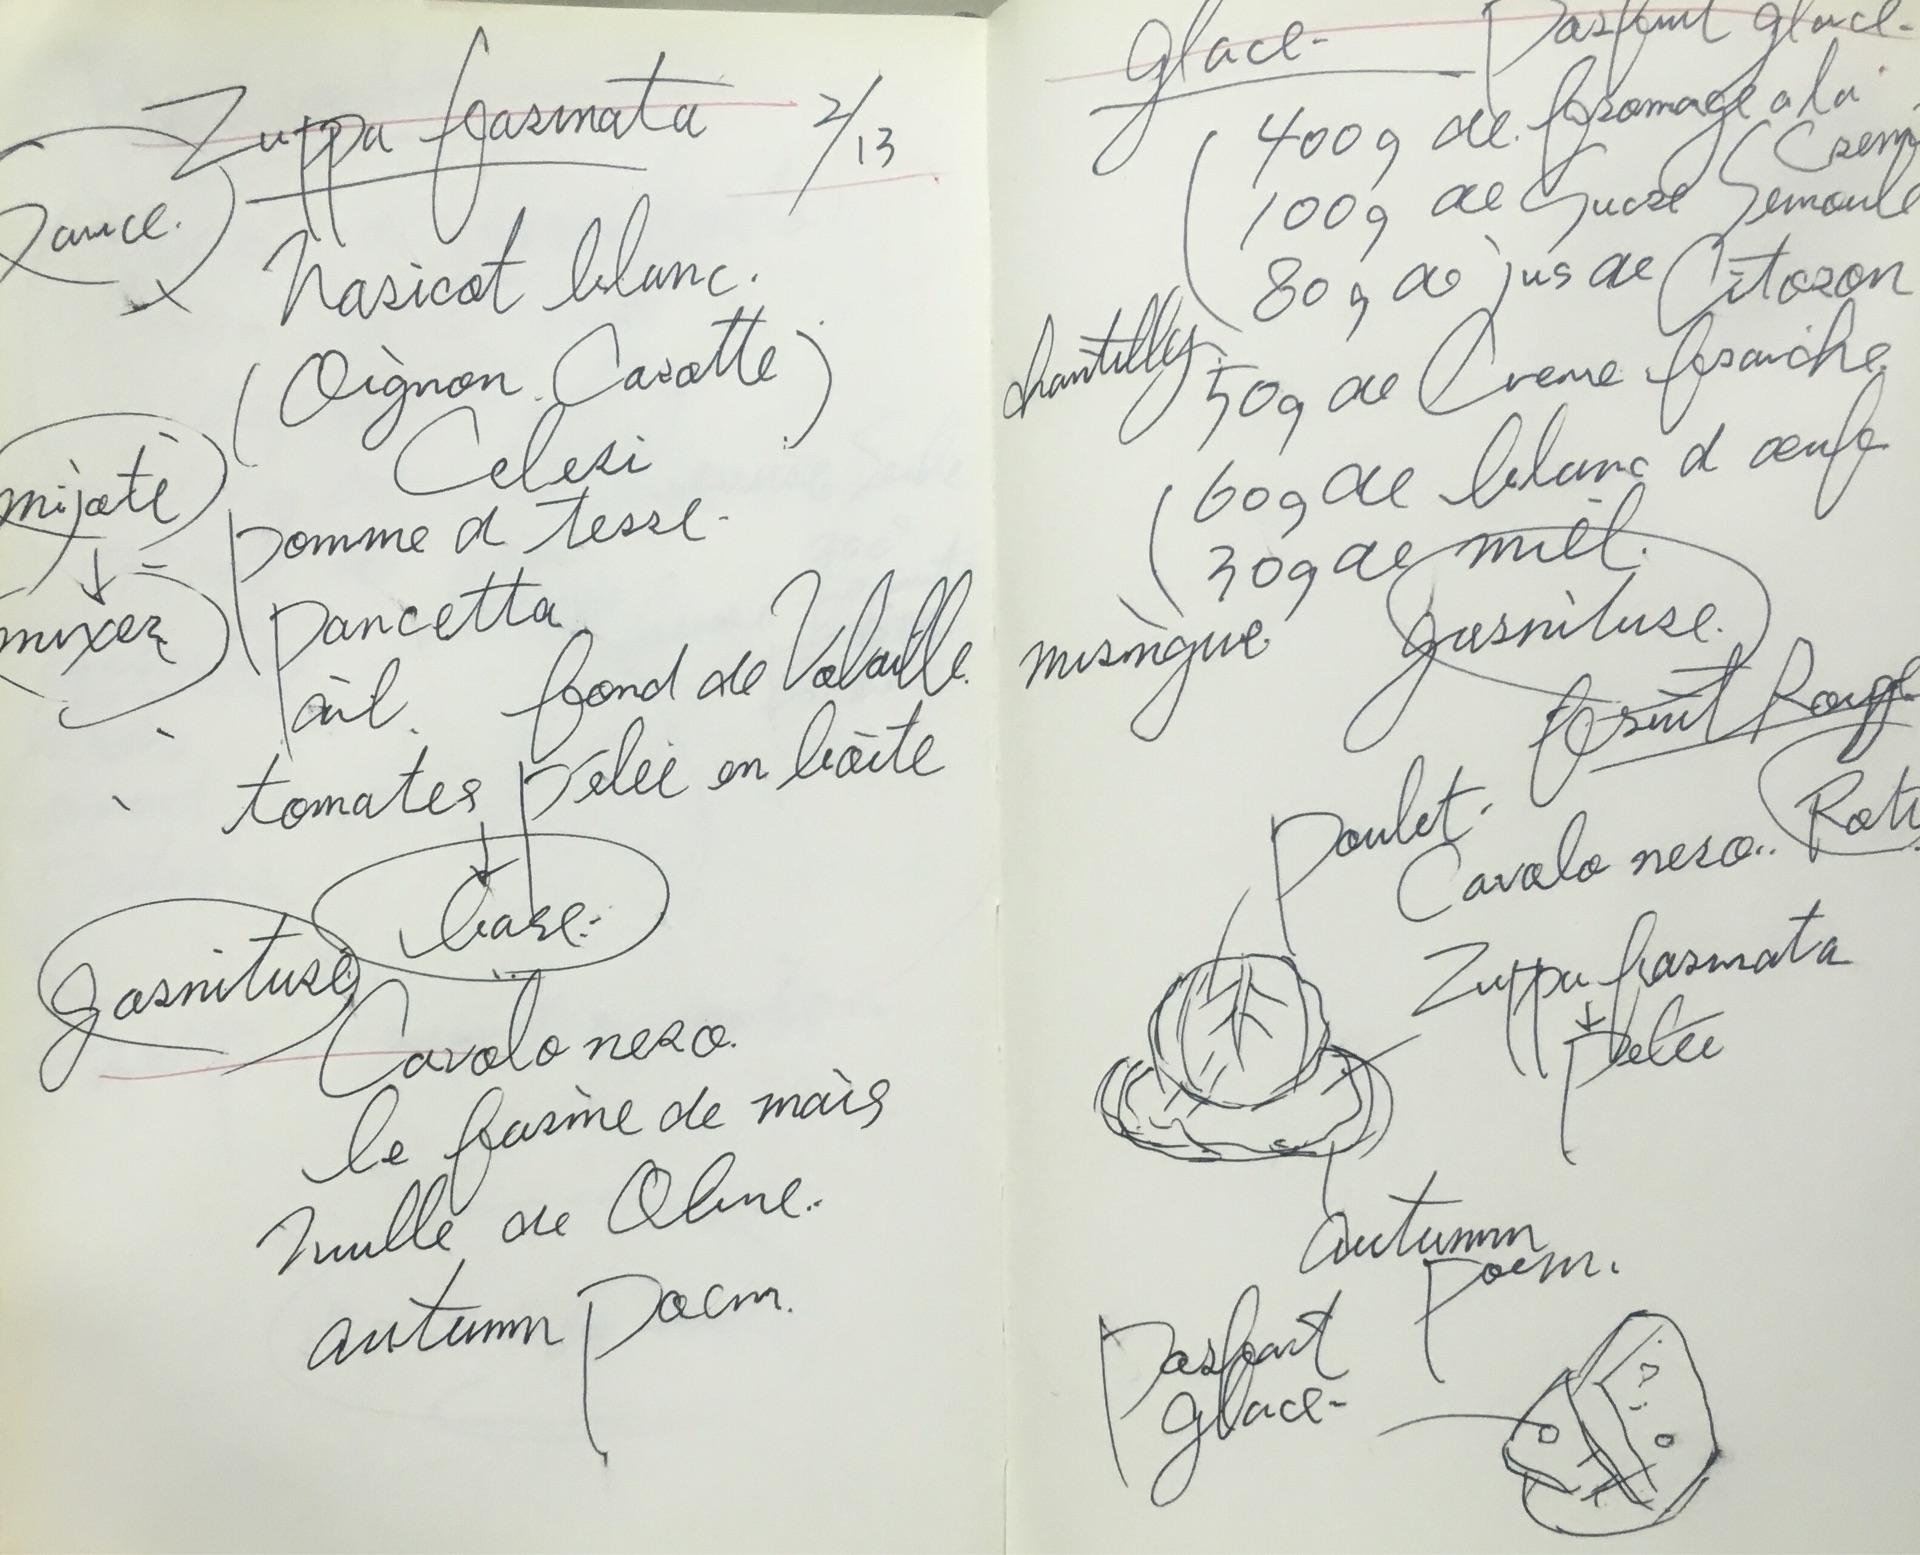 Zuppa farinata 2/13
Sauce.
Haricot blanc.
(Oignon Carotte)
Celeri
mijoté
pomme d terre.
mixer
pancetta
ail. fond de Volaille
tomates pelée en boite
base.
garniture
Cavolo nero.
le farine de maïs
huille de Olive.
autumn poem.
glace. parfait glace.
400g de fromage a la Creme
100g de Sucre Semoule
80g de jus de Citoron
chantilly
50g de Creme fraiche
60g de blanc d oeuf
30g de miel.
meringue
garniture.
fruit Rouge
poulet. Roti
Cavolo nero..
Zuppa farinata
autumn
poem.
parfait
glace.